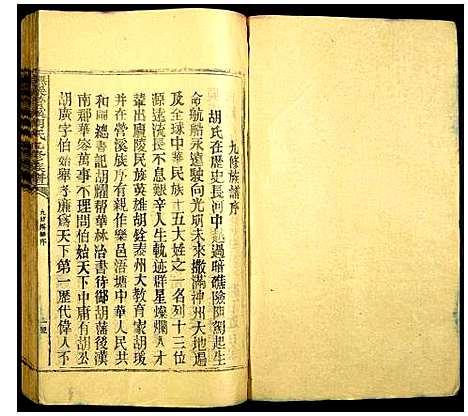 九修族譜序
胡氏在歷史長河中越過暗礁險阻朝起生
命航船永遠駛向光明未來撒滿神州大地遍
及全球中華民族十五大姓之一名列十三位
源遠流長不息艱辛人生軌迹群星燦爛人才
輩出廬陵民族英雄胡銓泰州大教育家胡瑗
并在營溪族序有親作樂邑浯塘中華人民共
和國總書記胡耀幫華林治書待御胡藩後漢
南郡華容萬事不理問伯始天下中庸有胡公
胡廣字伯始舉孝廉為天下第一歷代偉人不
胡氏九修族譜
九修譜序